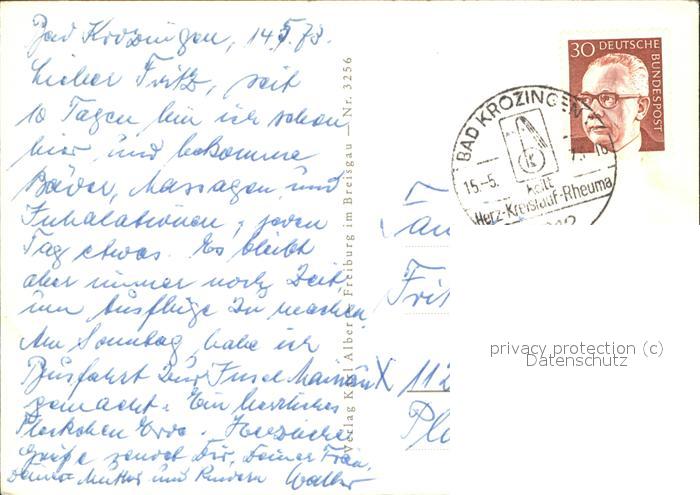 Bad Krozingen, 14.5.73.
Lieber Fritz, seit
10 Tagen bin ich schon
hier, und bekomme
Bäder, Massagen, und
Inhalationen, jeden
Tag etwas. Es bleibt
aber immer noch Zeit
um Ausflüge zu machen.
Am Sonntag, habe ich
Busfahrt zur Insel Mainau
gemacht. Ein herrliches
Fleckchen Erde. Herzliche
Grüße sendet Dir, Deiner Frau,
Deiner Mutter und Kindern Walter
Verlag Karl Alber Freiburg im Breisgau — Nr. 3256
30 DEUTSCHE BUNDESPOST
BAD KROZINGEN
15.-5.
heilt
Herz-Kreislauf-Rheuma
an
Frit
X 112
Pl
privacy protection (c)
Datenschutz